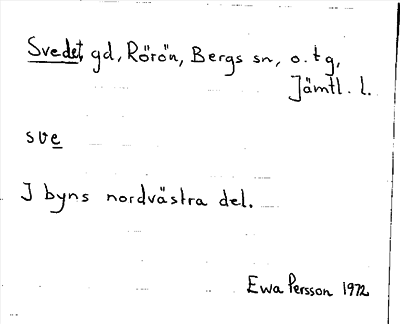 Svedet, gd, Rörön, Bergs sn, o. tg,
Jämtl. l.
sve
I byns nordvästra del.
Ewa Persson 1972